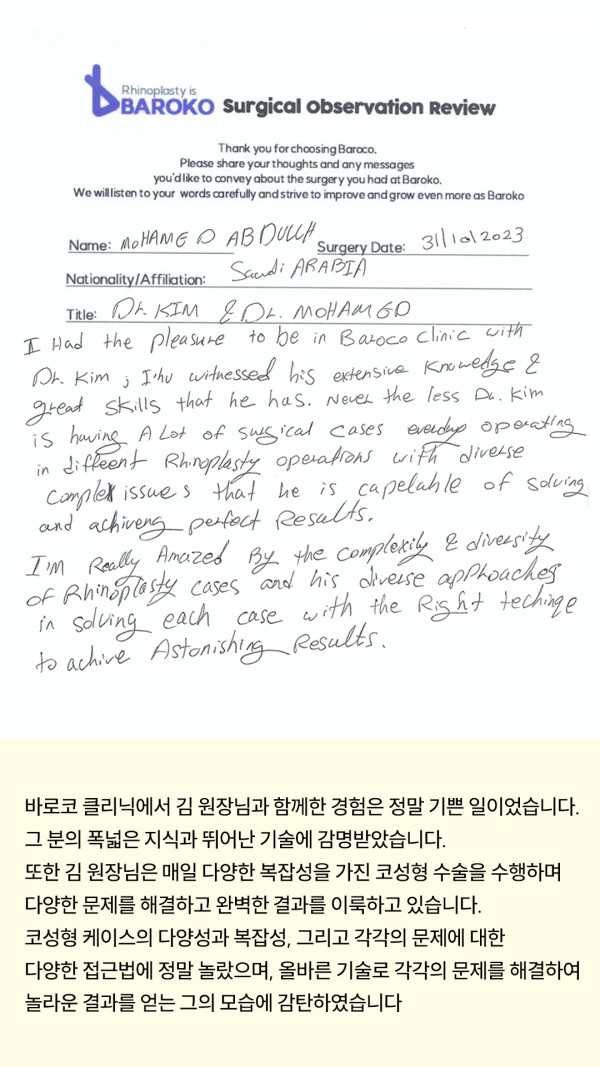 Rhinoplasty is
BAROKO Surgical Observation Review
Thank you for choosing Baroco.
Please share your thoughts and any messages
you'd like to convey about the surgery you had at Baroko.
We will listen to your words carefully and strive to improve and grow even more as Baroko
Name: MOHAMED ABDULLH Surgery Date: 31/10/2023
Nationality/Affiliation: Saudi ARABIA
Title: Dr. KIM & Dr. MOHAMED
I Had the pleasure to be in Baroco Clinic with
Dr. Kim ; I'hv witnessed his extensive Knowedge &
great skills that he has. Never the less Dr. Kim
is having A Lot of surgical cases everday operating
in diffeent Rhinoplasty operations with diverse
complex issues that he is capelable of solving
and achiveng perfect Results.
I'm Really Amazed By the complexity & diversity
of Rhinoplasty cases and his diverse approaches
in solving each case with the Right techinqe
to achive Astonishing Results.
바로코 클리닉에서 김 원장님과 함께한 경험은 정말 기쁜 일이었습니다.
그 분의 폭넓은 지식과 뛰어난 기술에 감명받았습니다.
또한 김 원장님은 매일 다양한 복잡성을 가진 코성형 수술을 수행하며
다양한 문제를 해결하고 완벽한 결과를 이룩하고 있습니다.
코성형 케이스의 다양성과 복잡성, 그리고 각각의 문제에 대한
다양한 접근법에 정말 놀랐으며, 올바른 기술로 각각의 문제를 해결하여
놀라운 결과를 얻는 그의 모습에 감탄하였습니다